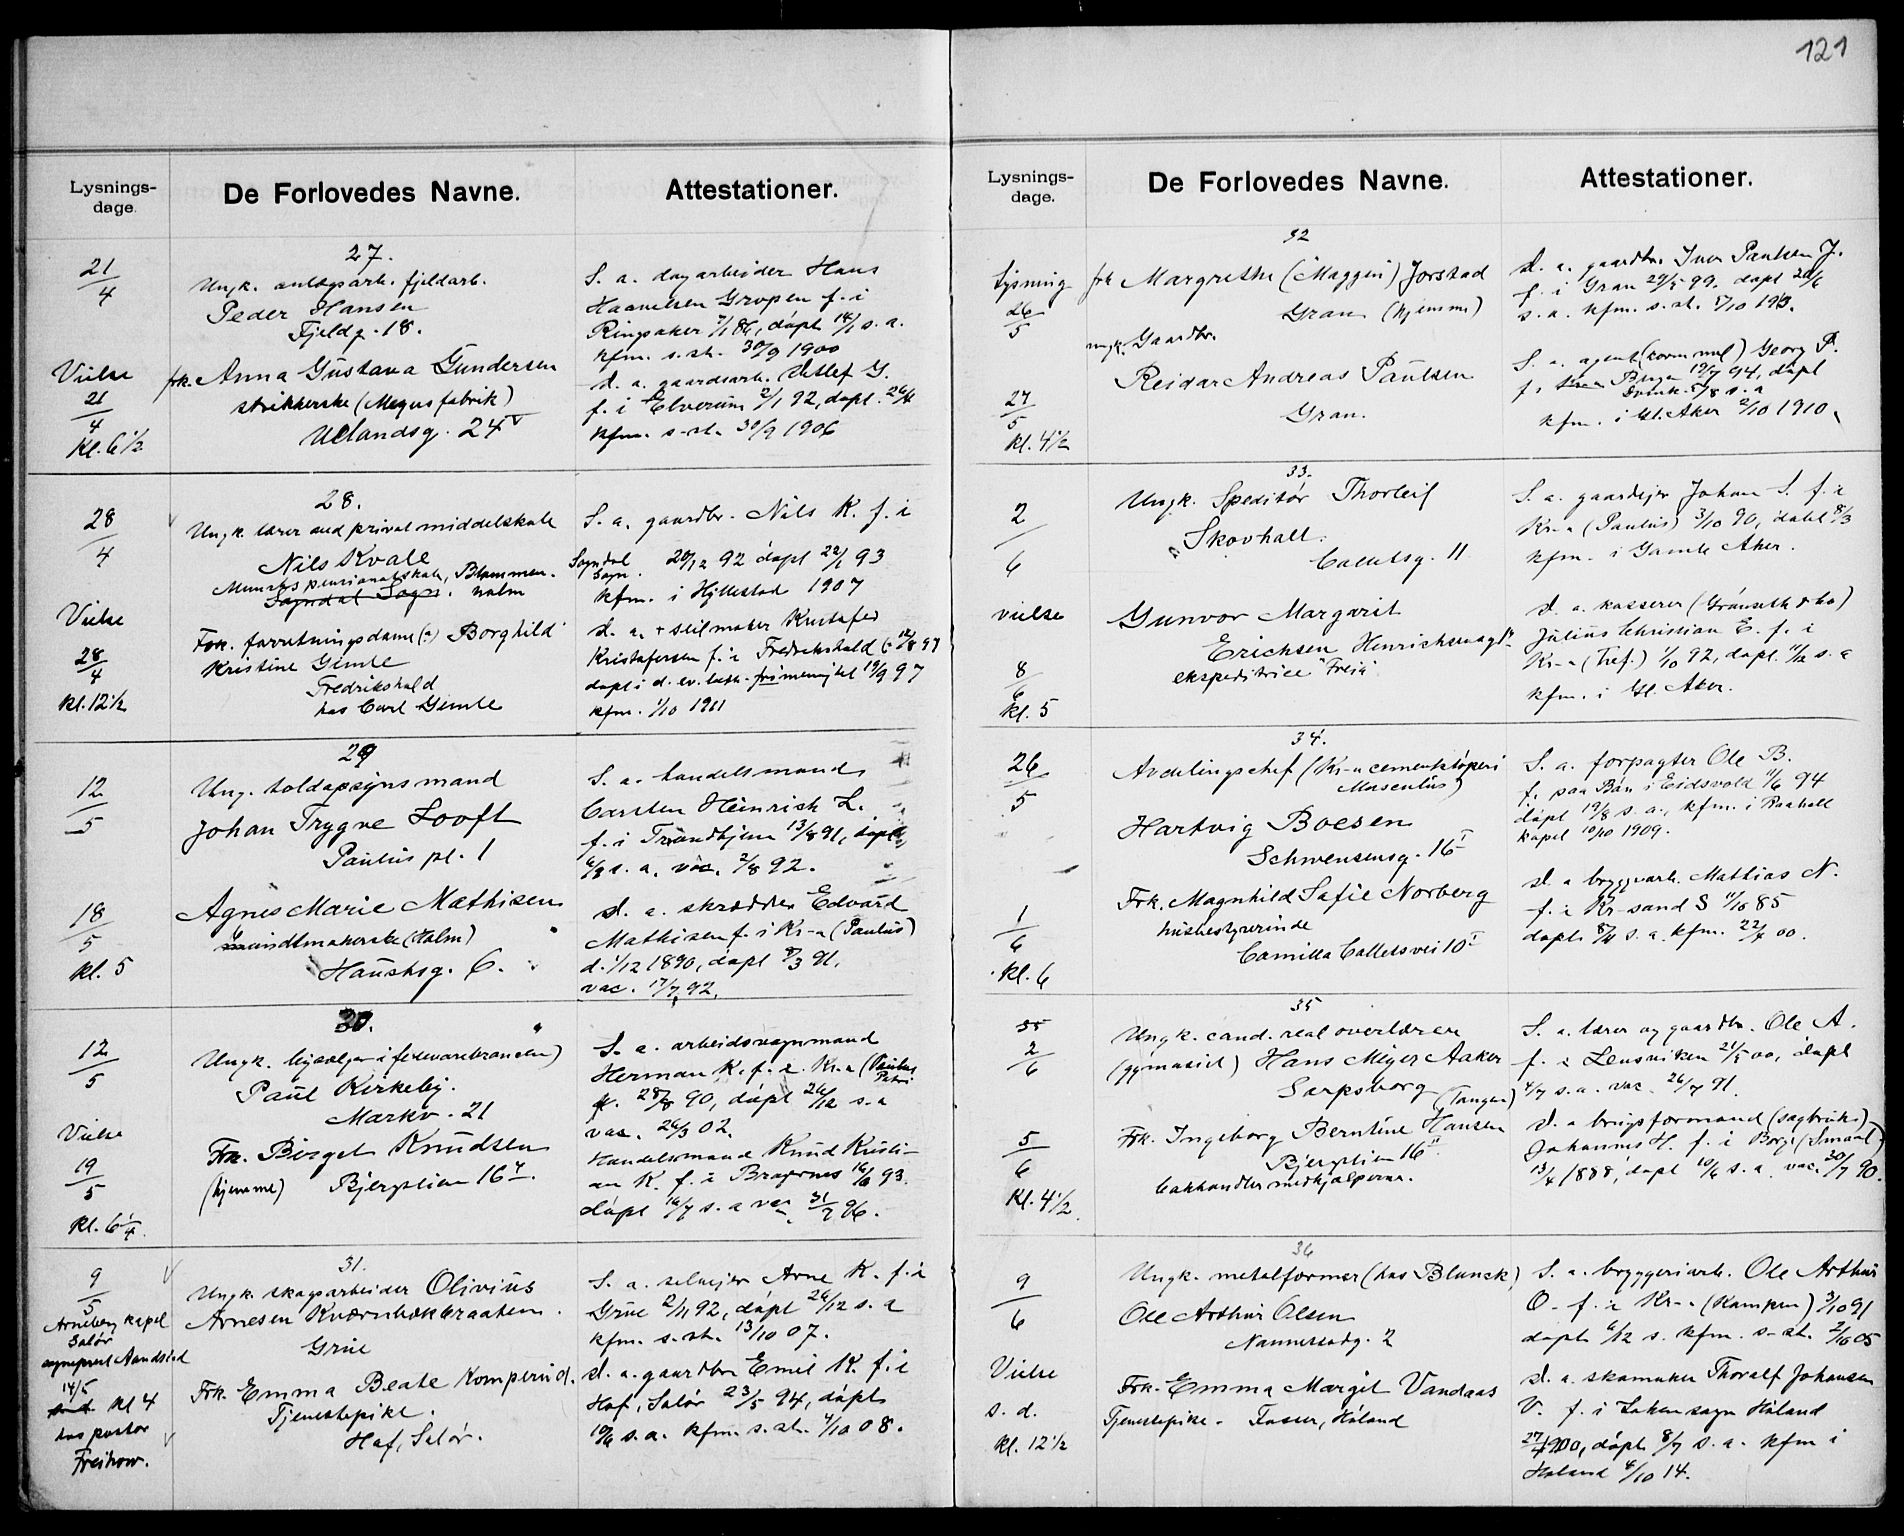 121
Lysnings-
dage.
De Forlovedes Navne.
Attestationer.
21/4
27.
Ungk. anlægsarb. fjeldarb.
Peder Hansen
Fjeldg. 18.
S. a. dagarbeider Hans
Haavelsen Gropen f. i
Ringsaker 7/1 86, døpt 14/1 s. a.
kfm. s. st. 30/9 1900
Vielse
21/4
Kl. 6 1/2
frk. Anna Gustava Gundersen
strikkerske (Magnus fabrik)
Uelandsg. 24 V
D. a. gaardsarb. Detlef G.
f. i Elverum 2/1 92, døpt. 26/6
kfm. s. st. 30/9 1906
28/4
28.
Ungk. lærer ved privat middelskole
Nils Kvale
Munchs pensionatskole, Blommen-
holm
Sogndal Sogn.
S. a. gaardbr. Nils K. f. i
Sogndal
Sogn. 20/12 92 døpt 22/1 93
kfm. i Hyllestad 1907
Vielse
28/4
Kl. 12 1/2
Frk. forretningsdame (:) Borghild
Kristine Gimle
Fredrikshald
hos Carl Gimle
D. a. + seilmaker Kristofer
Kristofersen f. i Fredrikshald 12/8 97
døpt i d. ev. luth. frimenighet 19/9 97
kfm. 1/10 1911
12/5
29
Ung. toldopsynsmand
Johan Trygve Looft
Paulus pl. 1
S. a. handelsmand
Carsten Heinrich L.
f. i Trondhjem 13/8 91, døpt
6/9 s. a. vac. 2/8 92.
18/5
Kl. 5
Agnes Marie Mathisen
(Holm)
Hauchsg. 6.
D. a. skrædder Edvard
Mathisen f. i Kr-a (Paulus)
d. 1/12 1890, døpt 8/3 91.
vac. 17/7 92.
12/5
30.
Ungk. i fedevarebrancen)
Paul Kirkeby.
Markv. 21
S. a. arbeidsvognmand
Herman K. f. i Kr-a (Paulus
Petri
28/8 90, døpt 26/12 s. a
vac. 26/3 02.
Vielse
19/5
Kl. 6 1/4
Frk. Birgit Knudsen
(hjemme) Bjerglien 16
Handelsmand Knud Kristi-
an K. f. i Bragernes 16/6 93.
døpt 16/7 s. a vac. 31/7 96.
9/5
Arneberg kapel
Solør
sogneprest Aandstad
14/5
kl 4
hos pastor
Freihow.
31.
Ungk. skogsarbeider Olivius
Arnesen Kværnbækbraaten.
Grue
S. a. selveier Arne K. f. i
Grue 2/11 92, døpt 26/12 s. a
kfm. s. st. 13/10 07.
Frk. Emma Beate Komperud.
Tjenestepike.
Hof, Solør.
D. a. gaardbr. Emil K. f. i
Hof, Solør 23/5 94, døpt
10/6 s. a. kfm. s. st. 4/10 08.
Lysnings-
dage.
De Forlovedes Navne.
Attestationer.
32
Lysning
26/5
frk Margrethe (Maggen) Jorstad
Gran (hjemme)
D. a. gaardbr. Iver Paulsen J.
f. i Gran 29/5 99. døpt 20/6
s. a. kfm. s. st. 5/10 1913.
27/5
Kl. 4 1/2
ungk. Gaardbr.
Reidar Andreas Paulsen
Gran.
S. a. agent (kommunal) Georg P.
f. 19/7 94, døpt
5/8 s. a
kfm. i Gl. Aker 2/10 1910.
2/6
33.
Ungk. Speditør Thorleif
Skovhall.
Colletsg. 11
S. a. gaardejer Johan S. f. i
Kr-a (Paulus) 3/10 90, døbt 8/3
kfm. i Gamle Aker.
vielse
8/6
Kl. 5
Gunvor Margarit
Erichsen Henrichsensgt.
ekspeditrice "Freia"
D. a. kasserer (Grønseth & co)
Julius Christian E. f. i
Kr-a (Tref.) 1/10 92, døpt. 11/12 s. a
kfm. i Gl. Aker.
26/5
34.
Avdelingschef (Kr-a cementstøperi
Hartvig Boesen
Schwensensg. 16 I
S. a. forpagter Ole B.
f. paa Bøn i Eidsvold 11/6 94
døpt 19/8 s. a., kfm. i Raaholt
kapel 10/10 1909.
1/6
Kl. 6
Frk. Magnhild Sofie Norberg
husbestyrerinde
Camilla Colletsvei 10 I
D. a bryggarb. Mathias N.
f. i Kr-sand S 11/10 85
døpt 8/11 s. a. kfm. 22/4 00.
35
2/6
35
Ungk. cand. real overlærer
(gymnasiet) Hans Meyer Aaker
Sarpsborg
S. a. lærer og gaardbr. Ole A.
f. i Lensviken 21/5 00, døpt
4/7 s. a. vac. 26/7 91.
5/6
Kl. 4 1/2.
Frk. Ingeborg Berntine Hansen (Tangen)
Bjerglien 16 II
bokhandlermedhjælperske.
D. a brugsformand (sagbruks)
Johannes H. f. i Borge (Smaal.)
13/4 1888, døpt 10/6 s. a vac. 30/7 90.
9/6
36
Ungk. metalformer (hos Blunck)
Ole Arthur Olsen
Nannestadg. 2
S. a. bryggeriarb. Ole Arthur
O. f. i Kr-a (Kampen) 3/10 91
døpt 6/12 s. kfm. s. st. 2/10 05
Vielse
s. d.
Kl. 12 1/2
Frk. Emma Margit Vandaas
Tjenestepike - Fosser, Høland
D. a. skomaker Thoralf Johansen
V. f. i Løken sogn Høland
27/4 1900, døpt 8/7 s. a. kfm i
Høland 4/10 14.